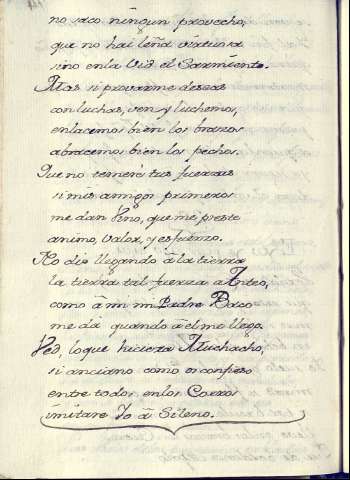 no saco ningun provecho,
que no hai leña virtuosa
sino en la Vid el Sarmiento.
Mas si provarme deseas
con luchas, ven y luchemos,
enlacemos bien los brazos
abracemos bien los pechos.
Que no temeré tus fuerzas
si mis amigos primeros
me dan Vino, que me preste
animo, valor, y esfuerzo.
No dio llegando â la tierra
la tierra tal fuerza a Anteo,
como â mi mi Padre Baco
me dà quando â el me llego.
Ved, lo que hiciera Muchacho,
si anciano como os confieso
entre todos en los Coros
imitare Yo â Sileno.